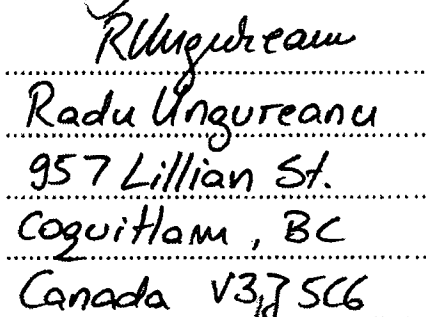 RUngureanu
Radu Ungureanu
957 Lillian St.
Coquitlam, BC
Canada V3J 5C6